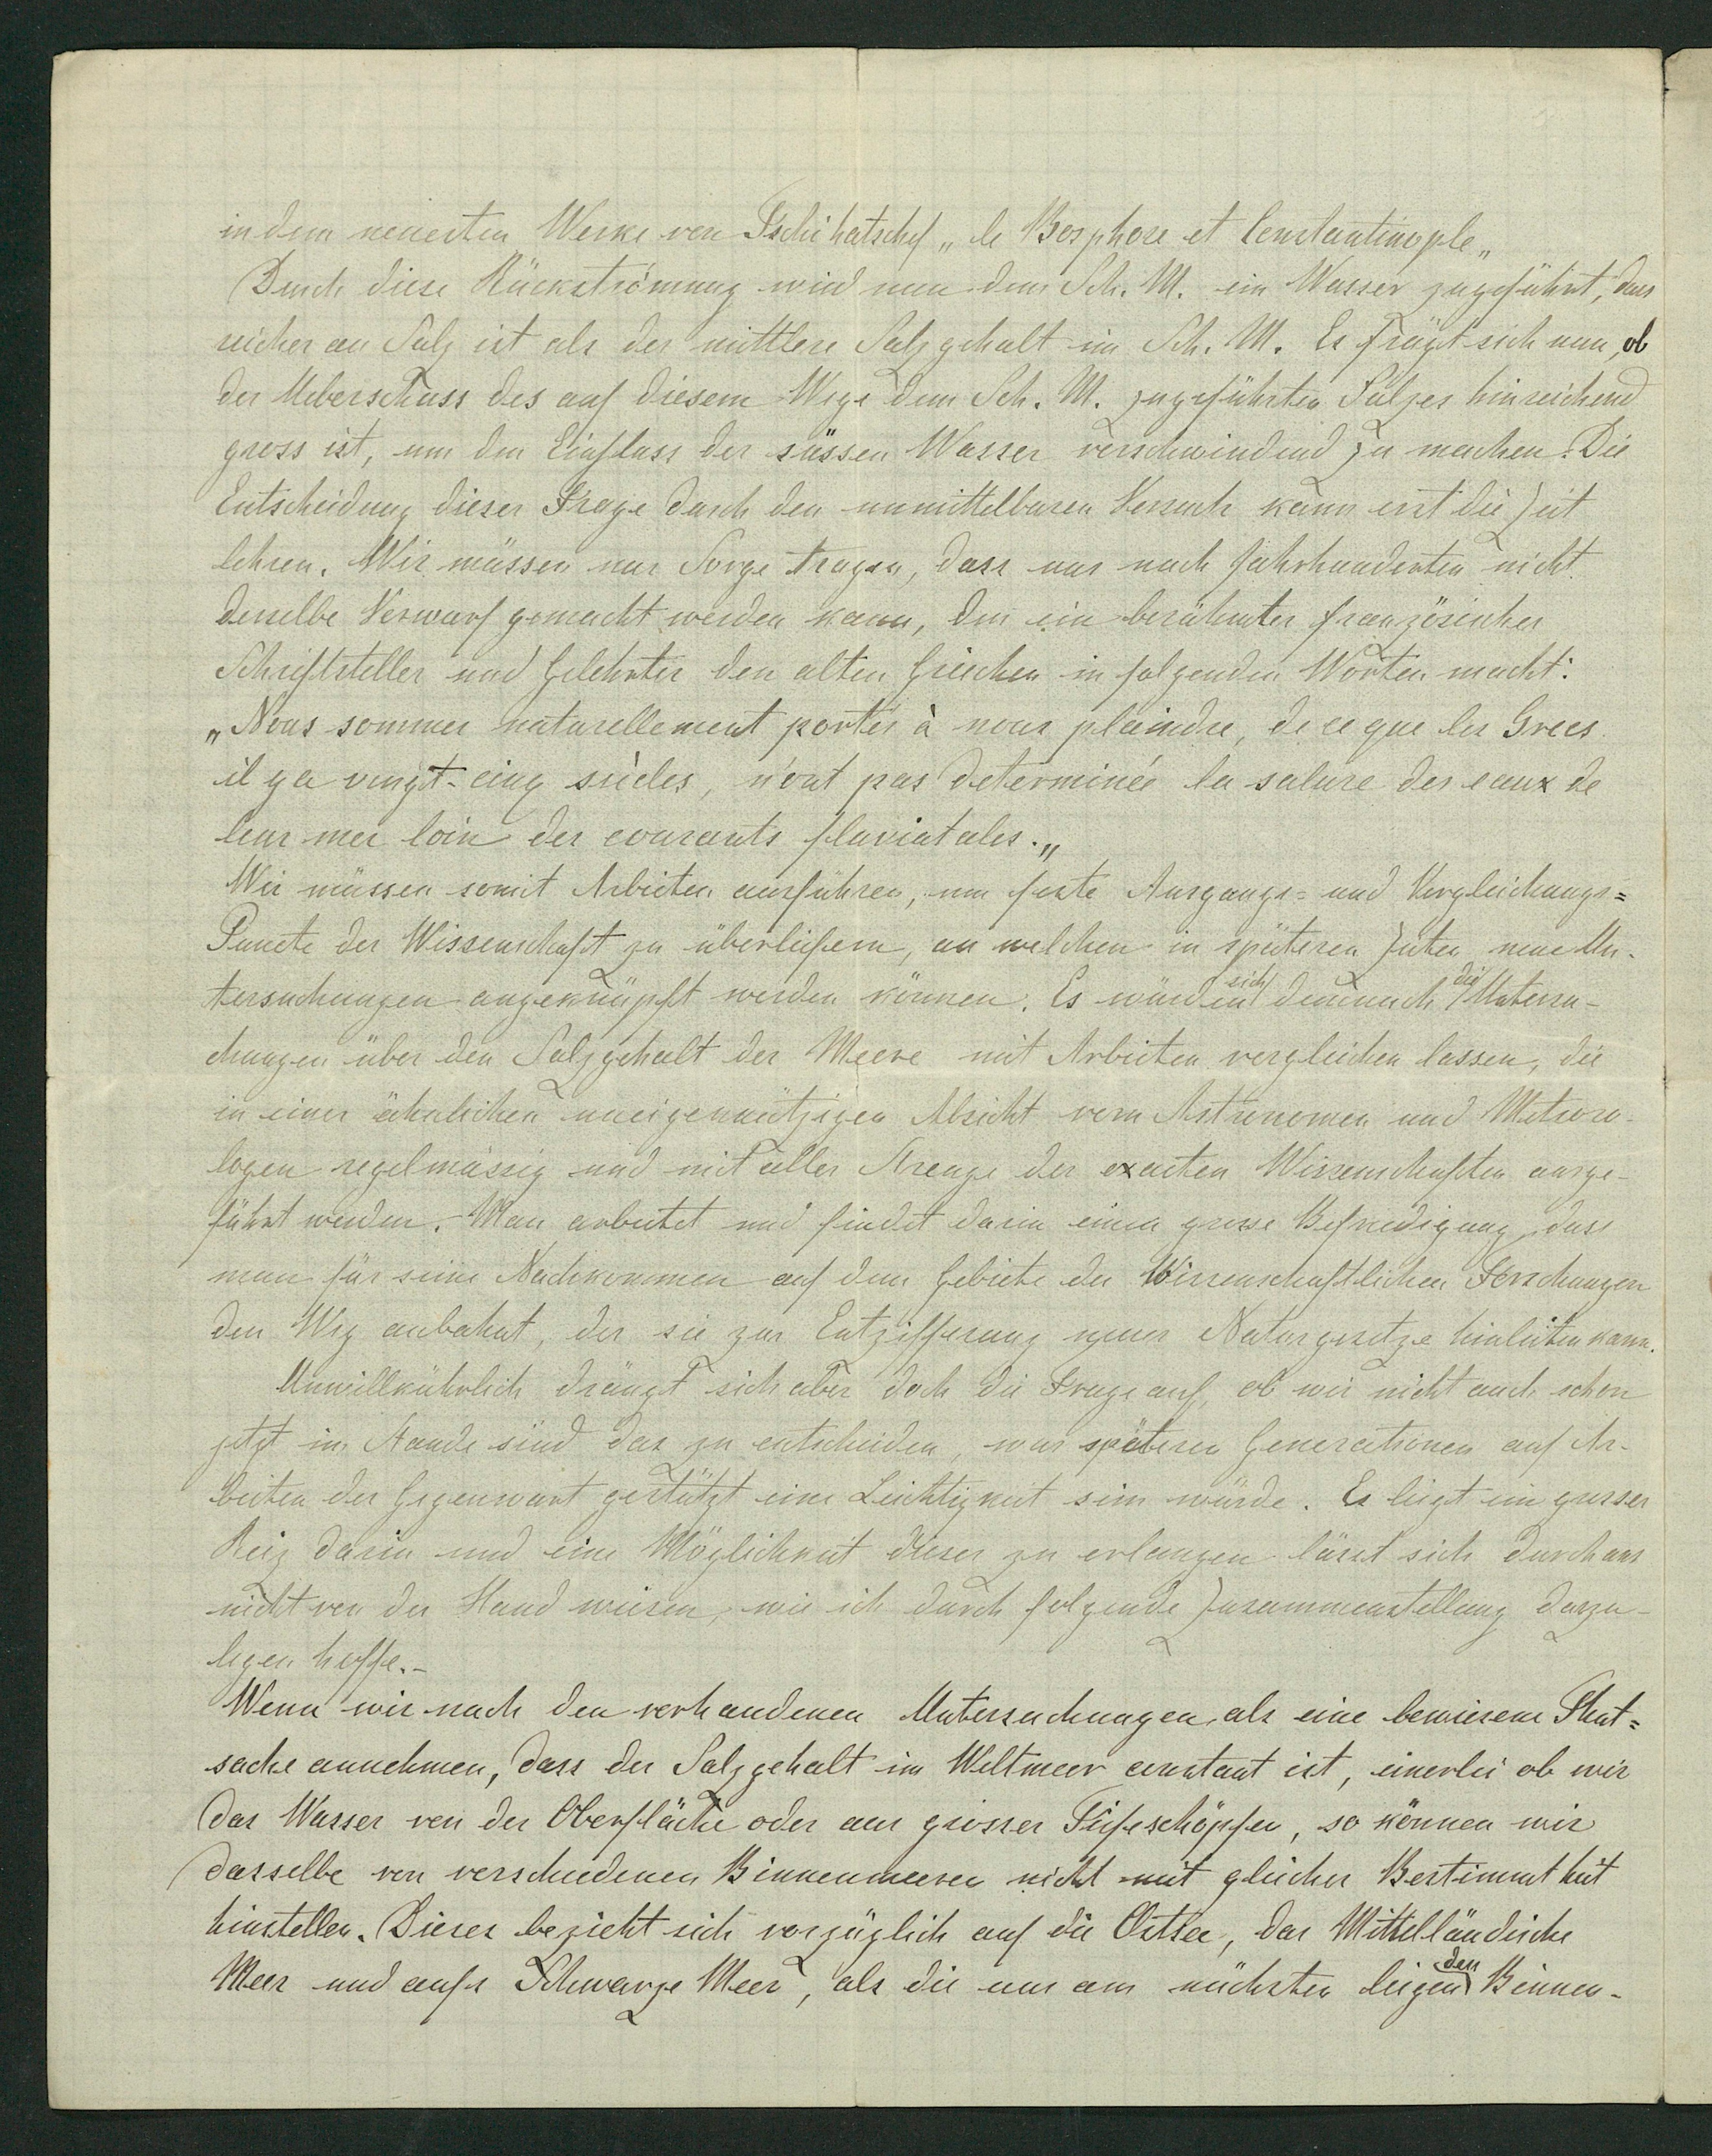 in dem neuesten Werke von Tschihatschef „le Bosphore et Constantinople„
Durch diese Rückströmung wird nun dem Sch. M. ein Wasser zugeführt, das
reicher an Salz ist als der mittlere Salzgehalt im Sch. M. Es frägt sich nun, ob
der Ueberschuss des auf diesem Wege dem Sch. M. zugeführten Salzes hinreichend
gross ist, um den Einfluss der süssen Wasser verschwindend zu machen. Die
Entscheidung dieser Frage durch den unmittelbaren Versuch kann erst die Zeit
lehren. Wir müssen nur Sorge tragen, dass uns nach Jahrhunderten nicht
derselbe Vorwurf gemacht werden kann, den ein berühmter französischer
Schriftsteller und Gelehrter den alten Griechen in folgenden Worten macht:
„Nous sommes naturellement portés à nous plaindre, de ce que les Grecs
il y a vingt-cinq siècles, n'ont pas determinée la salure des eaux de
leur mer loin des courants fluviatales.„
Wir müssen somit Arbeiten ausführen, um feste Ausgangs= und Vergleichungs=
Puncte der Wissenschaft zu überliefern, an welchen in späteren Zeiten neue Un-
tersuchungen angeknüpft werden können. Es würden sich demnach die Untersu-
chungen über den Salzgehalt der Meere mit Arbeiten vergleichen lassen, die
in einer ähnlichen uneigennützigen Absicht vom Astronomen und Meteoro-
logen regelmässig und mit aller Strenge der exacten Wissenschaften ausge-
führt werden. Man arbeitet und findet darin einen grosse Befriedigung, dass
man für seine Nachkommen auf dem Gebiete der Wissenschaftlichen Forschungen
den Weg anbahnt, der sie zur Entzifferung neuer Naturgesetze hinleiten kann.
Unwillkührlich drängt sich aber doch die Frage auf, ob wir nicht auch schon
jetzt im Stande sind das zu entscheiden, was späteren Generationen auf Ar-
beiten der Gegenwart gestützt eine Leichtigkeit sein würde. Es liegt ein grosser
Reiz darin und eine Möglichkeit dieses zu erlangen lässt sich durchaus
nicht von der Hand weisen, wie ich durch folgende Zusammenstellung darzu-
legen hoffe.-
Wenn wir nach den vorhandenen Untersuchungen als eine bewiesene That=
sache annehmen, dass der Salzgehalt im Weltmeer constant ist, einerlei ob wir
das Wasser von der Oberfläche oder aus grosser Tiefe schöpfen, so können wir
dasselbe von verschiedenen Binnenmeeren nicht mit gleicher Bestimmtheit
hinstellen. Dieses bezieht sich vorzüglich auf die Ostsee, das Mittelländische
Meer und aufs Schwarze Meer, als die uns am nächsten leigenden Binnen-